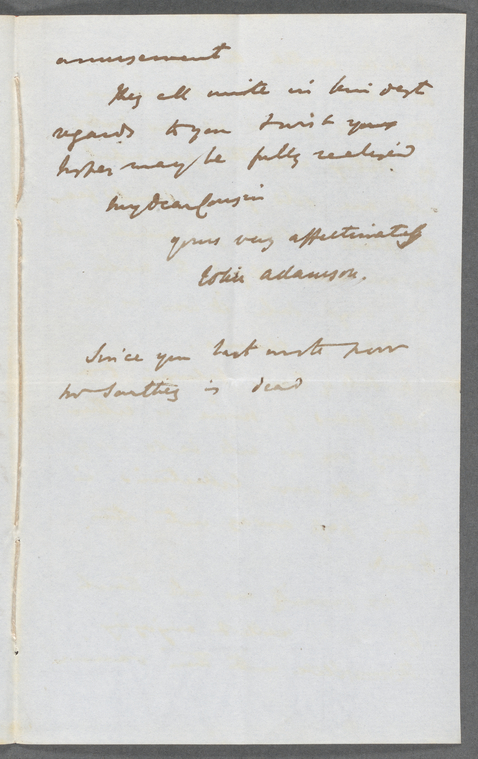 amusement
They all unite in kindest
regards to you & wish your
hopes may be fully realised
My dear Cousin
yours very affectionately
John Adamson.
Since you last wrote poor
Mr Southey is dead